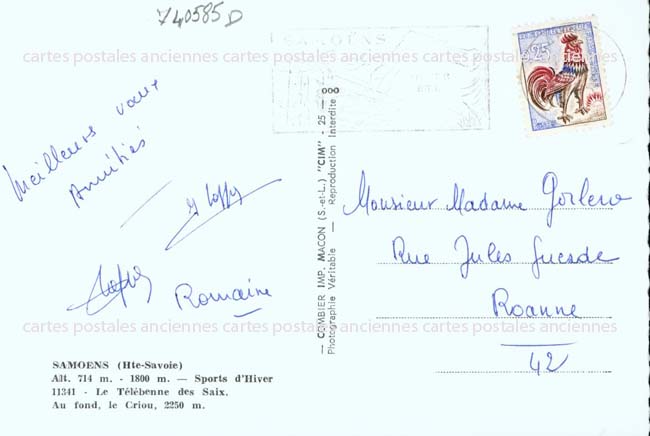 740585D
SAMOËNS
0,25
cartes postales anciennes cartes postales anciennes cartes postales anciennes
Meilleurs vœux
Amitiés
Romaine
Monsieur Madame Gorlero
Rue Jules Guesde
Roanne
42
— COMBIER IMP. MACON (S.-et-L.) "CIM" - 25 - ooo
Photographie Véritable — Reproduction Interdite
cartes postales anciennes cartes postales anciennes cartes postales anciennes
SAMOENS (Hte-Savoie)
Alt. 714 m. - 1800 m. — Sports d'Hiver
11341 - Le Télébenne des Saix.
Au fond, le Criou, 2250 m.